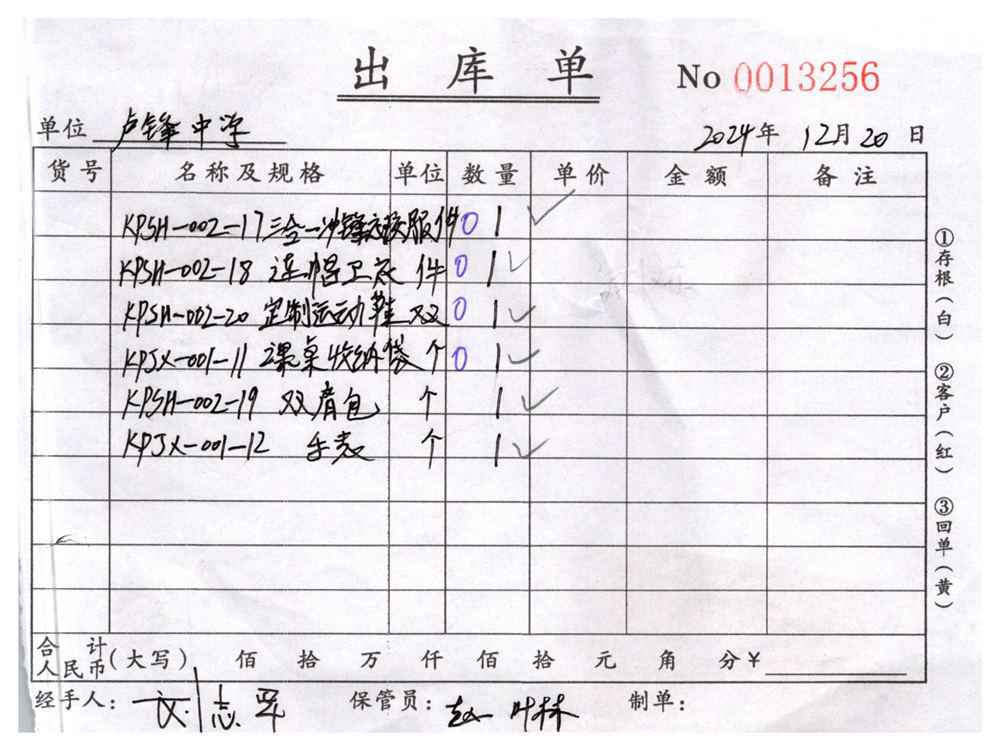 出库单 No 0013256
单位 卢锋中学 2024年 12月 20 日
货号 名称及规格 单位 数量 单价 金额 备注
KPSH-002-17 三合一冲锋衣校服 件 0 1 ✓
KPSH-002-18 连帽卫衣 件 0 1 ✓
KPSH-002-20 定制运动鞋 双 0 1 ✓
KPJX-001-11 课桌收纳袋 个 0 1 ✓
KPSH-002-19 双肩包 个 1 ✓
KPJX-001-12 手表 个 1 ✓
合计人民币(大写) 佰 拾 万 仟 佰 拾 元 角 分¥
经手人: 志军 保管员: 赵叶林 制单:
①存根(白) ②客户(红) ③回单(黄)